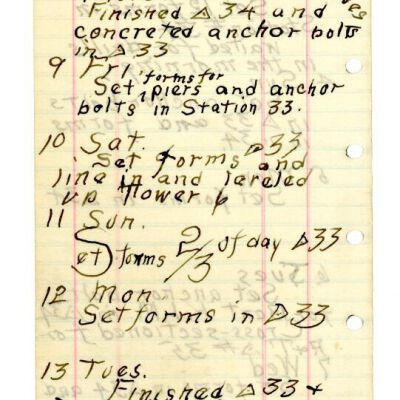 Finished △ 34 and
concreted anchor bolts
in △ 33
9 Fri forms for
Set piers and anchor
bolts in Station 33.
10 Sat. △ 33
Set forms and
line in and leveled
up tower 6
11 Sun.
Set forms 2/3 of day △ 33
12 Mon
Set forms in △ 33
13 Tues.
Finished △ 33 +